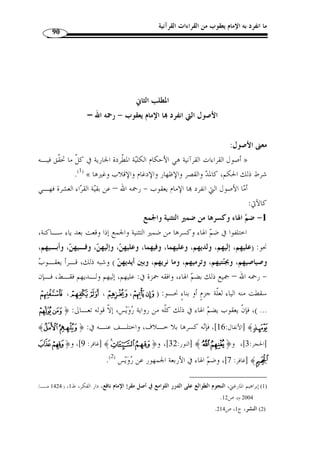 ما انفرد به الإمام يعقوب من القراءات القرآنية
90
المطلب الثاني
الأصول التي انفرد بها الإمام يعقوب – رحمه الله –
معنى الأصول:
« أصول القراءات القرآنية هي الأحكام الكلّيّة المطّردة الجارية في كلّ ما تحقّق فيـــه
شرط ذلك الحكم، كالمدّ والقصر والإظهار والإدغام والإقلاب وغيرها » (1).
أمّا الأصول التي انفرد بها الإمام يعقوب - رحمه الله – عن بقيّة القرّاء العشرة فهـــي
كالآتي:
1- ضم الهاء وكسرها من ضمير التثنية والجمع
اختلفوا في ضمّ الهاء وكسرها من ضمير التثنية والجمع إذا وقعت بعد ياء ســـاكنة،
نحو: (عليهم، إليهم، ولديهم، وعليهما، وفيهما، وعليهنّ، وإليهنّ، وفـــيهنّ، وأبـــيهم،
وصياصيهم، وبجنتيهم، وترميهم، وما نريهم، وبين أيديهنّ ) وشبه ذلك، قـــرأ يعقـــوب
– رحمه الله – جميع ذلك بضمّ الهاء، وافقه حمزة في: عليهم، إليهم ولـــديهم فقـــط، فـــإن
سقطت منه الياء لعلّة جزم أو بناء نحـــو: (
... )، فإنّ يعقوب يضمّ الهاء في ذلك كلّه من رواية رُوَيْس، إلاّ قوله تعـــالى:
[الأنفال:16]، فإنّه كسرها بلا خـــلاف، واختلـــف عنـــه في: ﴿ وَيُلْهِهِمُ الْأَمَلُ ﴾
[الحجر:3]، و﴿ يُغْنِهِمُ اللَّهُ ﴾ [النور:32]، و﴿ وَقِهِمُ السَّيِّئَاتِ ﴾ [غافر: 9]، و﴿ وَقِهِمْ عَذَابَ
الْجَحِيمِ ﴾ [غافر: 7]، وضمّ الهاء في الأربعة الجمهور عن رُوَيْس (2).
(1) إبراهيم المارغني، النجوم الطوالع على الدرر اللوامع في أصل مقرإ الإمام نافع، دار الفكر، ط1، ( 1424 هـ:
2004 م، ص12.
(2) النشر، ج1، ص214.